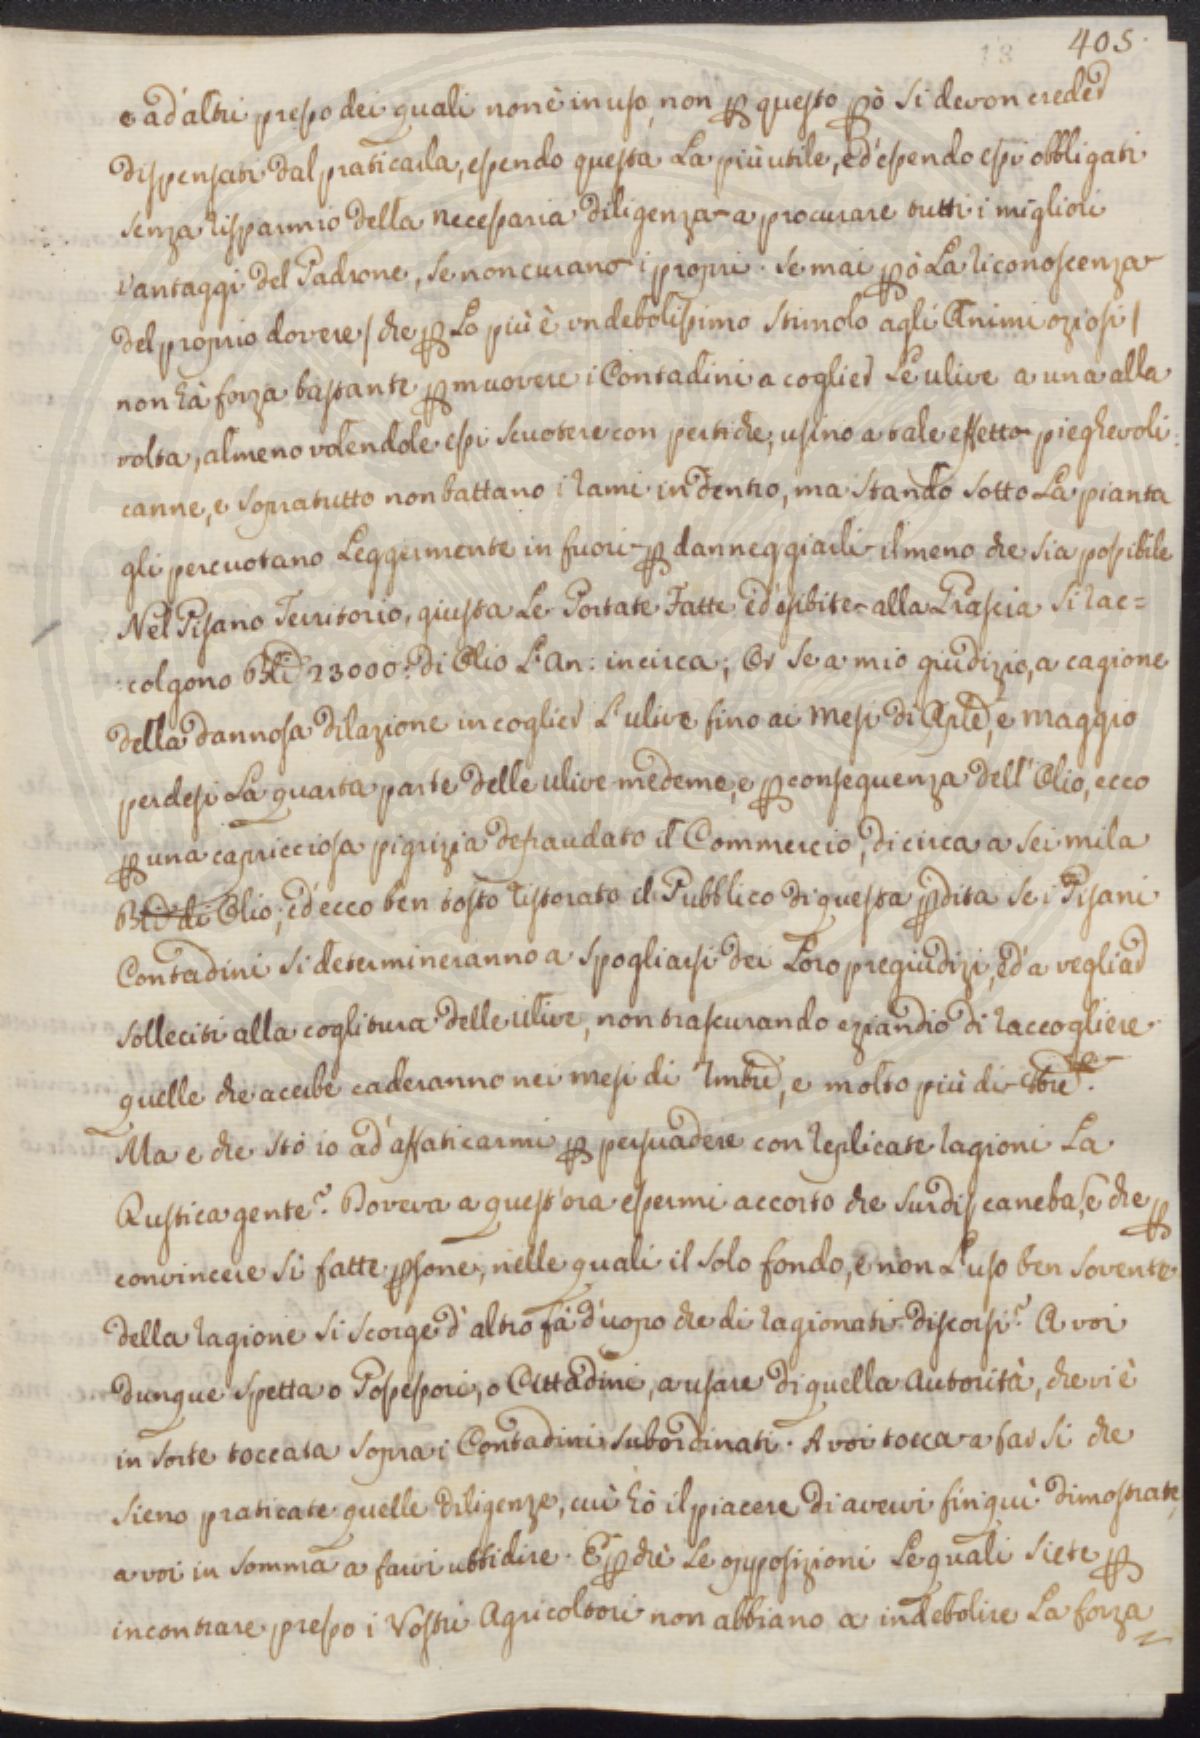 13 405.
e ad'altri presso dei quali non è in uso, non p questo pò si devon creder
dispensati dal praticarla, essendo questa La più utile, ed'essendo essi obbligati
senza risparmio della necessaria diligenza a procurare tutti i migliori
vantaggi del Padrone, se non curano i propri. Se mai pò La riconoscenza
del proprio dovere / che p Lo più è un debolissimo stimolo agli Animi oziosi /
non hà forza bastante p muovere i Contadini a coglier Le ulive a una alla
volta, almeno volendole essi scuotere con pertiche, usino a tale effetto pieghevoli
canne, e sopratutto non battano i rami in dentro, ma stando sotto La pianta
gli percuotano Leggermente in fuori p danneggiarli il meno che sia possibile
Nel Pisano Territorio, giusta Le Portate Fatte ed'esibite alla Grascia si rac=
colgono Bli 23000: di Olio L'An: incirca; Or se a mio giudizio, a cagione
della dannosa dilazione in coglier L'ulive fino ai Mesi di Aple, e Maggio
perdesi La quarta parte delle ulive medeme, e p consequenza dell'Olio, ecco
p una capricciosa pigrizia defraudato il Commercio, di circa a sei mila
Bli di Olio; ed'ecco ben tosto ristorato il Pubblico di questa pdita se i Pisani
Contadini si determineranno a spogliarsi dei Loro pregiudizi, ed'a vegliar
solleciti alla coglitura delle ulive, non trascurando eziandio di raccogliere
quelle che acerbe caderanno nei mesi di 9mbre, e molto più di
Ma e che stò io ad'affaticarmi p persuadere con replicate ragioni La
Rustica gente? Doveva a quest'ora essermi accorto che surdis canebam, e che p
convincere sì fatte psone, nelle quali il solo fondo, e non L'uso ben sovente
della ragione si scorge d'altro fà d'uopo che di ragionati discorsi? A voi
dunque spetta o Possessori, o Cittadini, a usare di quella Autorità, che vi è
in sorte toccata sopra i Contadini subordinati. A voi tocca a far si che
sieno praticate quelle diligenze, cui hò il piacere di avervi fin quì dimostrate,
a voi in somma a farvi ubbidire. E pchè Le opposizioni Le quali siete p
incontrare presso i Vostri Agricoltori non abbiano a indebolire La forza